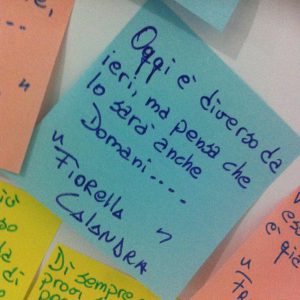 Oggi è diverso da
ieri, ma pensa che
lo sarà anche
Domani....
"Fiorella
Calandra"
Di sempre